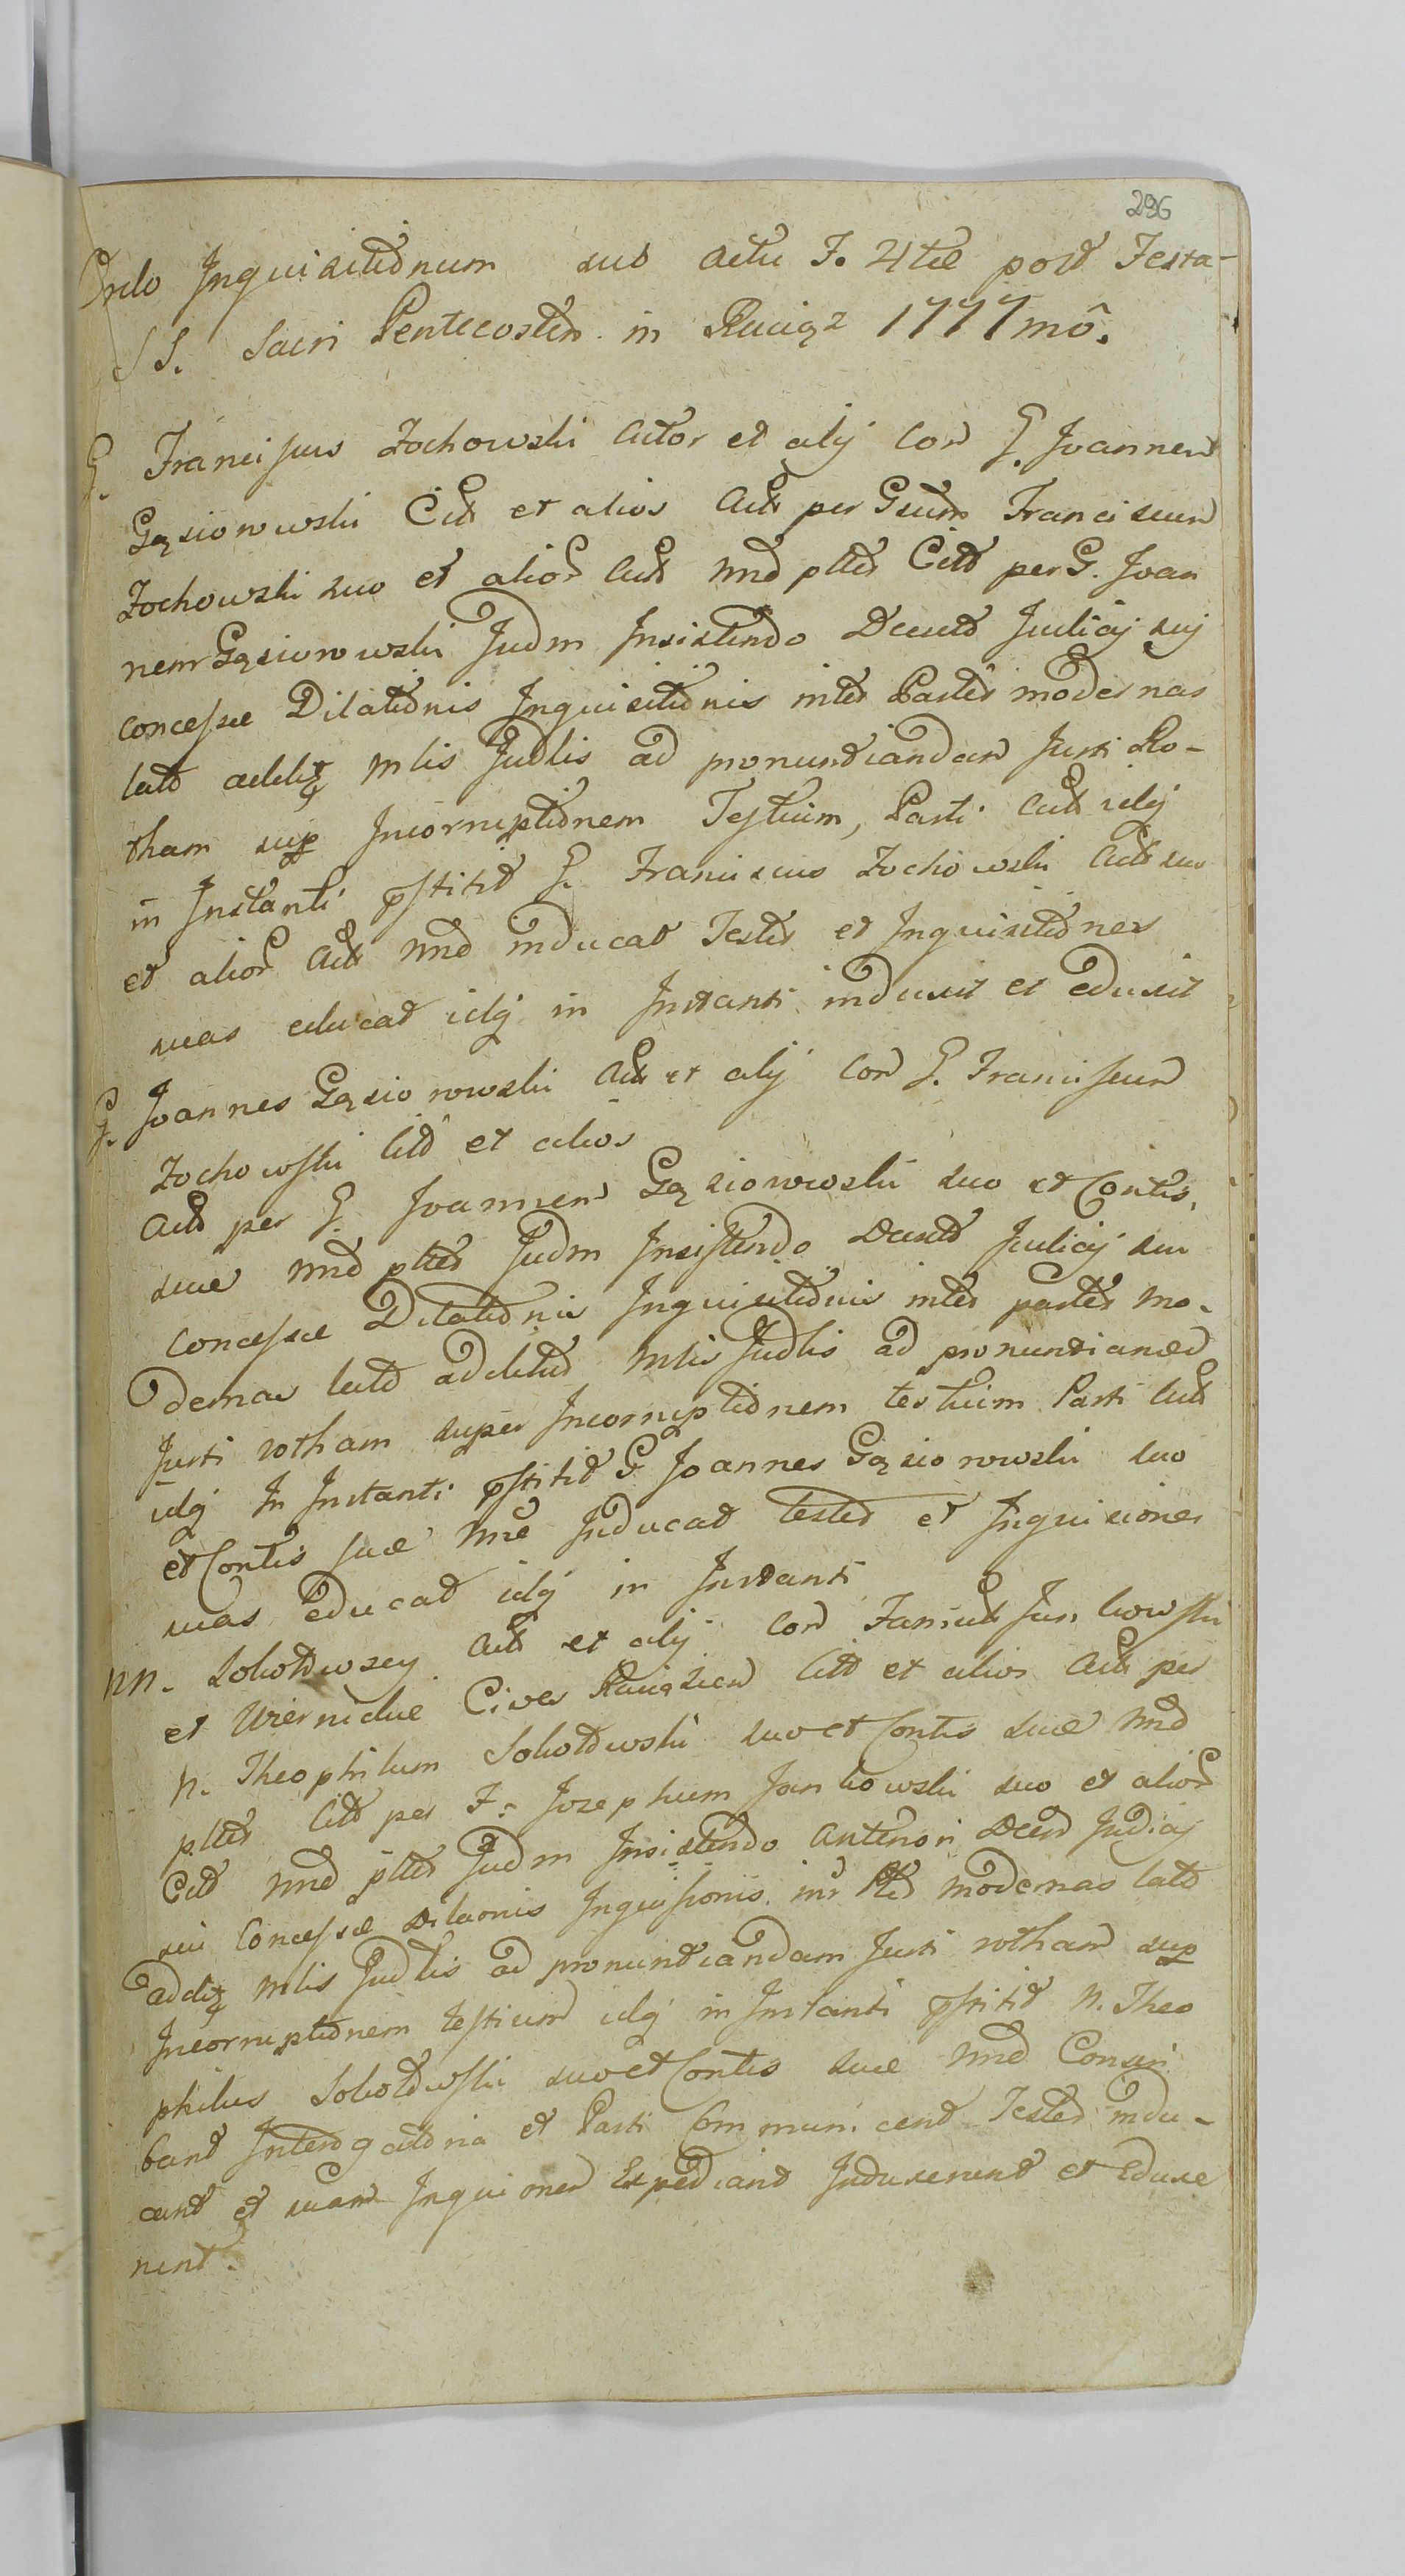 296
Ordo Inquisitionum sub actu F. 4tæ post Festa-
SS. Sacri Pentecosten in Raciąz 1777mô.
G. Franciscus Żochowski Actor et alij Con G. Joannem
Gąsiorowski Citt et alios Act per Gsum Franciscum
Żochowski suo et alior Act nnê pttes Citt per G. Joan
nem Gąsiorowski Judm Insistendo Decreto Judicij suj
concessæ Dilationis Inquisitionis inter Partes modernas
lato addito Mlis Judlis ad pronuntiandam Jurti Ro-
tham sup Incorruptionem Testium, Parti Act idq
in Instanti pstitit G. Franciscus Żochowski Act suo
et alior Act nnê inducat Testes et Inquisitiones
suas educat idq in Instanti induxit et eduxit
G. Joannes Gąsiorowski Act et alij Con G. Franciscum
Żochowski Citt et alios
Act per G. Joannem Gąsiorowski suo et Contis
suæ nnê pttes Judm Insistendo Decreto Judicij sui
concessæ Dilationis Inquisitionis inter partes mo-
dernas lato addito Mlis Judlis ad pronuntiand
Jurti rotham super Incorruptionem testium Parti Act
idq In Instanti pstitit G Joannes Gąsiorowski suo
et Contis suæ nnê Inducat testes et Inquisiones
suas educat idq in Instanti
NN. Sokołowscy Act et alij Con Famat Jankowski
et Wiernickie Cives Raciązien Citt et alios Act per
N. Theophilum Sokołowski suo et Contis suæ nnê
pttes Citt per F. Josephum Jankowski suo et alior
Citt nnê pttes Judm Insistendo Anteriori Decre Judicij
sui Concessæ Dilaonis Inquisionis inr Ptes modernas lato
addito Mlis Judlis ad pronuntiandam Jurti rotham sup
Incorruptionem testium idq in Instanti pstitit N. Theo
philus Sokołowski suo et Contis suæ nnê Conscri
bant Interrogatoria et Parti Communicent Testes indu-
cant et suam Inquiones Expediant Induxerunt et Eduxe
runt.